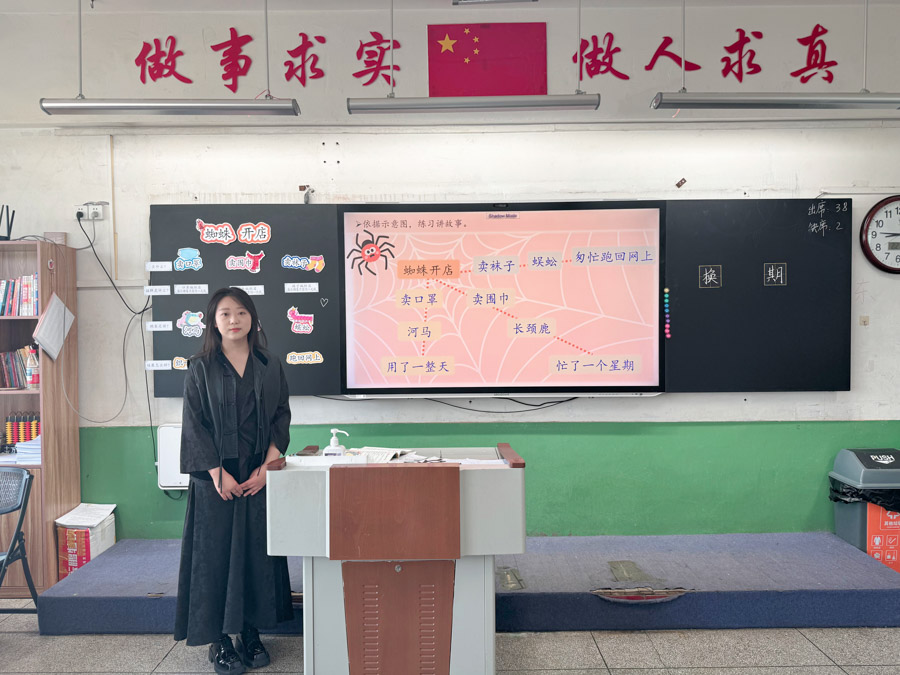 做事求实 做人求真
蜘蛛 开店
卖口罩 卖围巾 卖袜子
河马
蜈蚣
跑回网上
依据示意图，练习讲故事。
蜘蛛开店 卖袜子 蜈蚣 匆忙跑回网上
卖口罩 卖围巾
河马 长颈鹿
用了一整天 忙了一个星期
出席: 38
缺席: 2
换 期
PUSH